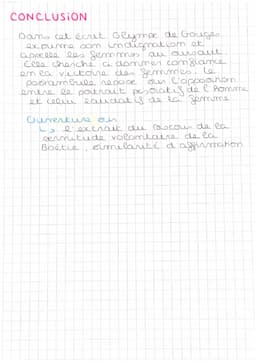 CONCLUSION
Dans cet écrit Olympe de Gouges
exprime son indignation et
appelle les femmes au sursaut
Elle cherche a donner confiance
en la victoire des femmes. Le
préambule repose sur l'opposition
entre le portrait péjoratif de l'homme
et celui laudatif de la femme
Ouverture sur
↳ l'extrait du Discours de la
servitude volontaire de la
Boétie, similarité d'affirmation